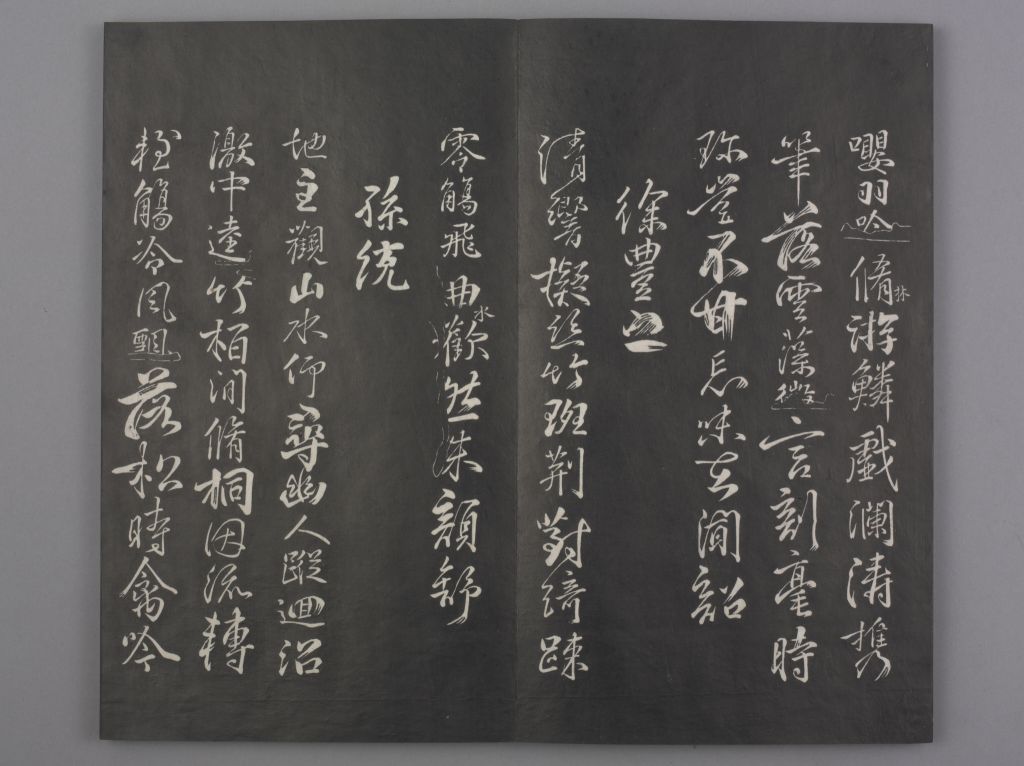 嚶羽吟脩林游鱗戲瀾濤攜
筆落雲藻微言剖毫時
珍豈不甘忘味在聞韶
徐豐之
清響擬絲竹班荊對綺疎
零觴飛曲水歡然洙顏舒
孫統
地主觀山水仰尋幽人蹤迴沼
激中逵竹栢間脩桐因流轉
輕觴冷風飄落松時禽吟